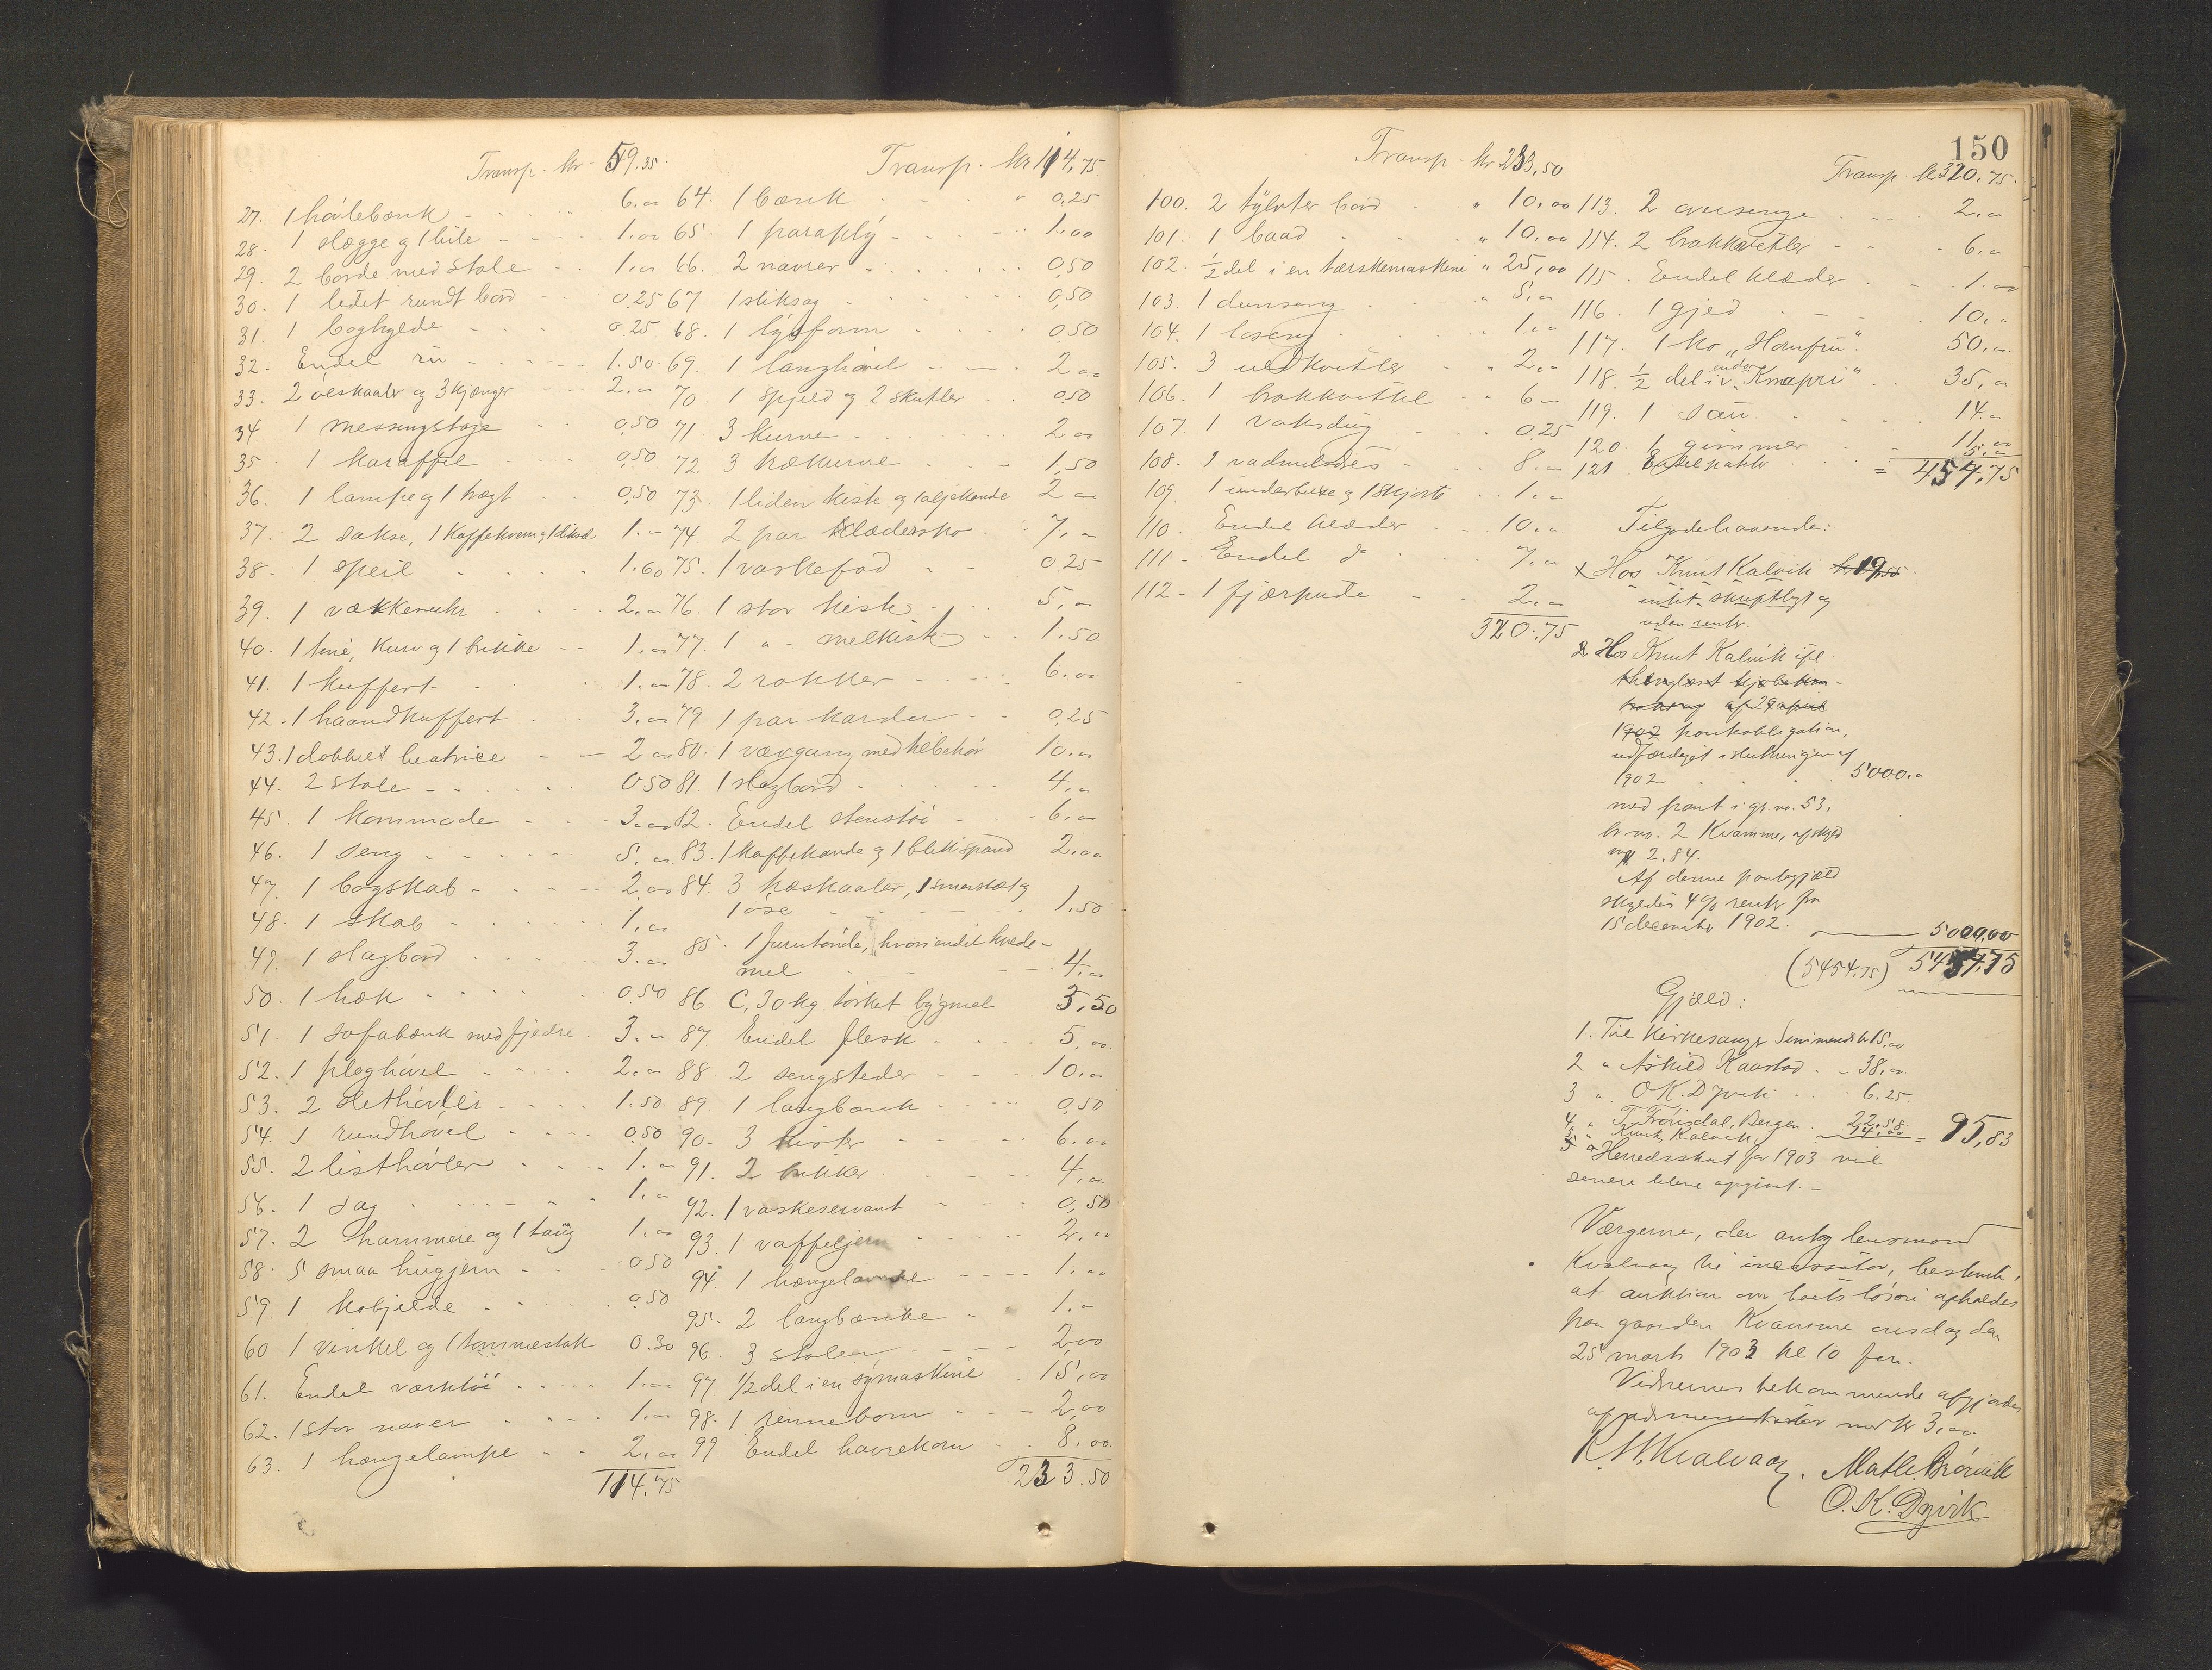 Transp. kr. 59.35.
27. 1 hövlebænk - - 6.00
28. 1 slægge og 1 bile - - 1.00
29. 2 borde med stole - - 1.00
30. 1 lidet rundt bord - - 0.25
31. 1 boghylde - - 0.25
32. Endel - - 1.50
33. 2 ölskaaler og 3 kjænger - - 2.00
34. 1 messingstage - - 0.50
35. 1 karaffel - - 0.50
36. 1 lampe og 1 vægt - - 0.50
37. 2 sakse, 1 kaffekvern og 1 1.-
38. 1 speil - - 1.60
39. 1 vækkeruhr - - 2.00
40. 1 tine, kurv og 1 brikke - - 1.00
41. 1 kuffert - - 1.00
42. 1 haandkuffert - - 3.00
43. 1 dobbelt - - 2.00
44. 2 stole - - 0.50
45. 1 kommode - - 3.00
46. 1 seng - - 5.00
47. 1 bogskab - - 2.00
48. 1 skab - - 1.00
49. 1 slagbord - - 3.00
50. 1 hæk - - 0.50
51. 1 sofabænk med fjedre 3.-
52. 1 pleghövel - - 2.00
53. 2 slethövler - - 1.50
54. 1 rundhövel - - 0.50
55. 2 listhövler - - 1.-
56. 1 sag - - 1.-
57. 2 hammere og 1 tang 1.00
58. 5 smaa hugjern - - 0.50
59. 1 kobjelde - - 0.50
60 1 vinkel og 1 tommestok 0.30
61. Endel værktöi - - 1.00
62. 1 stor naver - - 1.00
63. 1 hængelampe - - 2.00
114.75
Transp. kr 114.75
64. 1 bænk - - 0.25
65. 1 paraply - - 1.00
66. 2 navrer - - 0.50
67. 1 stiksag - - 0.50
68. 1 lysform - - 0.50
69. 1 langhövel - - 2.00
70. 1 spjeld og 2 skutler - - 0.50
71. 3 kurve - - 2.00
72 3 - - 1.50
73. 1 liden kiste og 1 oljekande 2.00
74 2 par lædersko - - 7.-
75. 1 vaskefad - - 0.25
76. 1 stor kiste - - 5.00
77. 1 " melkiste - - 1.50
78. 2 rokker - - 6.00
79. 1 par karder - - 0.25
80. 1 vævgang med tilbehör 10.00
81. 1 slagbord - - 4.00
82. Endel stentöi - - 6.00
83. 1 kaffekande og 1 blikspand 2.00
84. 3 træskaaler, 1 og
1 öse - - 1.50
85. 1 furutönde, hvori endel hvede-
mel - - 4.00
86. C. 30 kg. törket bygmel 3,50
87. Endel flesk - - 5.00
88. 2 sengsteder - - 10.00
89. 1 langbænk - - 0.50
90. 3 kister - - 6.00
91. 2 brikker - - 4.00
92. 1 vaskeservant - - 0.50
93. 1 vaffeljern - - 2.00
94. 1 hængelampe - - 1.00
95. 2 langbænke - 1.-
96. 3 stoler - - 2.00
97. 1/2 del i en symaskine 15.00
98. 1 rennebom - - 2.00
99. Endel havrekorn - 8.00
233.50
Transp. kr 233,50
100. 2 tylvter bord " 10.00
101. 1 baad " 10.00
102. 1/2 del i en tærskemaskine " 25,00
103. 1 dunseng " 5.00
104. 1 loseng " 1.00
105. 3 uldkvitler " 2.00
106. 1 brokkvittel - 6-
107. 1 voksdug - 0.25
108. 1 - 8.00
109. 1 underbuxe og 1 skjorte 1.00
110. Endel klæder - 10.00
111- Endel do 7.00
112- 1 fjærpude - 2.00
320.75
150
Transp. kr 320.75.
113. 2 - 2.00
114. 2 brokkvitler - 6.00
115. Endel klæder - 1.00
116. 1 gjed - 10.-
117. 1 ko "Hornfru". 50.00
118. 1/2 del i "Knapri" 35.00
119. 1 sau 14.00
120. 1 gimmer - 11.00
121 Endel 5.00
= 454.75
Tilgodehavende:
x Hos Knut Kalvik kr 19.55.
intet skriftligt og
uden renter.
2 Hos Knut Kalvik ifl.
1902 pantobligation,
udfærdiget i slutningen af
1902 5000.00
med pant i gr. no. 53,
br. no. 2 Kvamme, af skyld
mk 2.84.
Af denne pantegjæld
skyldes 4% renter fra
15 december 1902.
5000,00
(5454.75) 5454,75
Gjæld:
1. Til kirkesanger kr 15.00
2 " Askild Kaarstad - 38.00
3 " O K. Dyvik 6.25
4. " T. Bergen. 22.58
5. " Knut Kalvik 14.00 = 95,83
Herredsskat for 1903 vil
senere blive opgivet. -
Værgerne, der antog lensmand
Kvalvaag til incassator, bestemte,
at auktion over boets lösöre afholdes
paa gaarden Kvamme onsdag den
25 marts 1903 kl 10 fm.
Vidnernes tilkommende afgjordes
af med kr 3.00.
Kvalvaag. Mathi. Brörvik
O. K. Dyvik